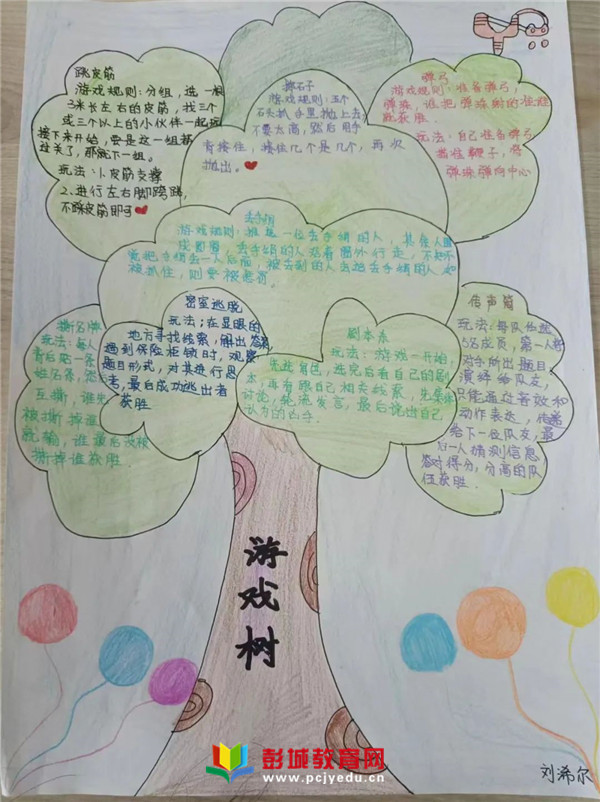 跳皮筋
游戏规则：分组，选一根
3米长左右的皮筋，找三个
或三个以上的小伙伴一起玩
接下来开始，要是这一组都
过关了，那就下一组。
玩法：1.皮筋支撑
2.进行左右脚跨跳，
不踩皮筋即可
掷石子
游戏规则：五个
石头抓手里抛上去，
不要太高，然后用手
背接住，接住几个是几个，再次
抛出。
弹弓
游戏规则：准备弹弓，
弹珠，谁把弹珠射的准谁
就获胜
玩法：自己准备弹弓
弹珠弹向中心
丢手绢
游戏规则：推选一位丢手绢的人，其余人围
成圆圈，丢手绢的人沿着圈外行走，不知不
觉把手绢丢一人后面，被丢到的人去追丢手绢的人，如
被抓住，则要被惩罚。
撕名牌
玩法：每人
背后贴一条
姓名条，然后
互撕，谁先
被撕掉谁
就输，谁最后没被
撕掉谁获胜
密室逃脱
玩法：在显眼的
地方寻找线索，解出答案
遇到保险柜锁时，观察
题目形式，对其进行思
考，最后成功逃出者
获胜
剧本杀
玩法：游戏一开始，
先选角色，选完后看自己的剧
本，再看跟自己相关线索，先集体
讨论，轮流发言，最后说出自己
认为的凶手
传声筒
玩法：每队任然
5名成员，第一人将
对手所出题目
演绎给队友，
只能通过音效和
动作表达，传递
给下一位队友，最
后一人猜测信息
答对得分，分高的队
伍获胜
游戏树
彭城教育网
www.pcjyedu.cn
刘浠尔